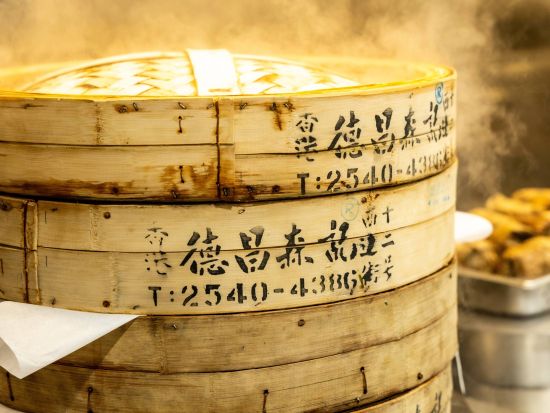 香港
德昌森記
T:2540-4386
香港
德昌森記
十二号
T:2540-4386